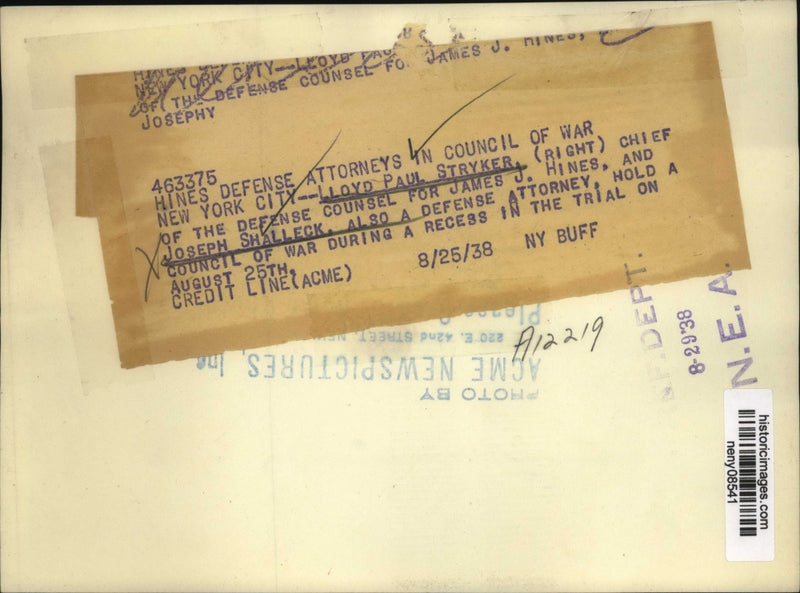 NEW YORK CITY--LLOYD
OF THE DEFENSE COUNSEL FO JAMES J. HINES,
JOSEPHY
463375
HINES DEFENSE ATTORNEYS IN COUNCIL OF WAR
NEW YORK CITY--LLOYD PAUL STRYKER, (RIGHT) CHIEF
OF THE DEFENSE COUNSEL FOR JAMES J. HINES, AND
JOSEPH SHALLECK, ALSO A DEFENSE ATTORNEY, HOLD A
COUNCIL OF WAR DURING A RECESS IN THE TRIAL ON
AUGUST 25TH.
CREDIT LINE(ACME) 8/25/38 NY BUFF
A12219
PHOTO BY
ACME NEWSPICTURES, Inc
220 E. 42nd STREET, NEW
Please
F. DEPT.
8-29-38
N.E.A.
historicimages.com
neny08541